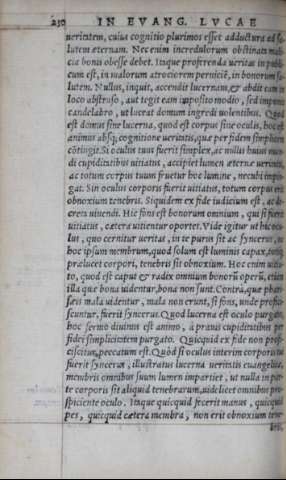 230 IN EVANG. LVCAE
ueritatem, cuius cognitio plurimos esset adductura ad sa
lutem æternam. Nec enim incredulorum obstinata mali
cia bonis obesse debet. Itaque proferenda ueritas in publi
cum est, in malorum atrociorem perniciē, in bonorum sa
lutem. Nullus, inquit, accendit lucernam, & abdit eam in
loco abstruso, aut tegit eam imposito modio, sed imponit
candelabro, ut luceat domum ingredi uolentibus. Quod
est domui sine lucerna, quod est corpus sine oculis, hoc est
animus absq; cognitione ueritatis, quæ per fidem simplicem
cōtingit. Si oculus tuus fuerit simplex, ac nullis huius mun
di cupiditatibus uitiatus, accipiet lumen æternæ ueritatis,
ac totum corpus tuum fruetur hoc lumine, necubi impin
gat. Sin oculus corporis fuerit uitiatus, totum corpus erit
obnoxium tenebris. Siquidem ex fide iudicium est, ac di
screta uiuendi. Hic fons est bonorum omnium, qui si fuerit
uitiatus, cætera uitientur oportet. Vide igitur ut hic ocu
lus, quo cernitur ueritas, in te purus sit ac synceru', ne
hoc ipsum membrum, quod solum est luminis capax, totiq;
prælucet corpori, tenebris sit obnoxium. Hoc enim uitia-
to, quod est caput & radix omnium bonorū operū, etiam
illa quæ bona uidentur, bona non sunt. Contrà, quæ phari
sæis mala uidentur, mala non erunt, si fons, unde profici-
scuntur, fuerit syncerus. Quod lucerna est oculo purgato,
hoc sermo diuinus est animo, à prauis cupiditatibus per
fidei simplicitatem purgato. Quicquid ex fide non profi-
ciscitur, peccatum est. Quòd si oculus interim corporis tui
fuerit syncerus, illustratus lucerna ueritatis euangelicæ,
membris omnibus suum lumen impartiet, ut nulla in par
te corporis sit aliquid tenebrarum, uidelicet omnibus pro-
spiciente oculo. Itaque quicquid fecerit manus, quicquid
pes, quicquid cætera membra, non erit obnoxium tene-